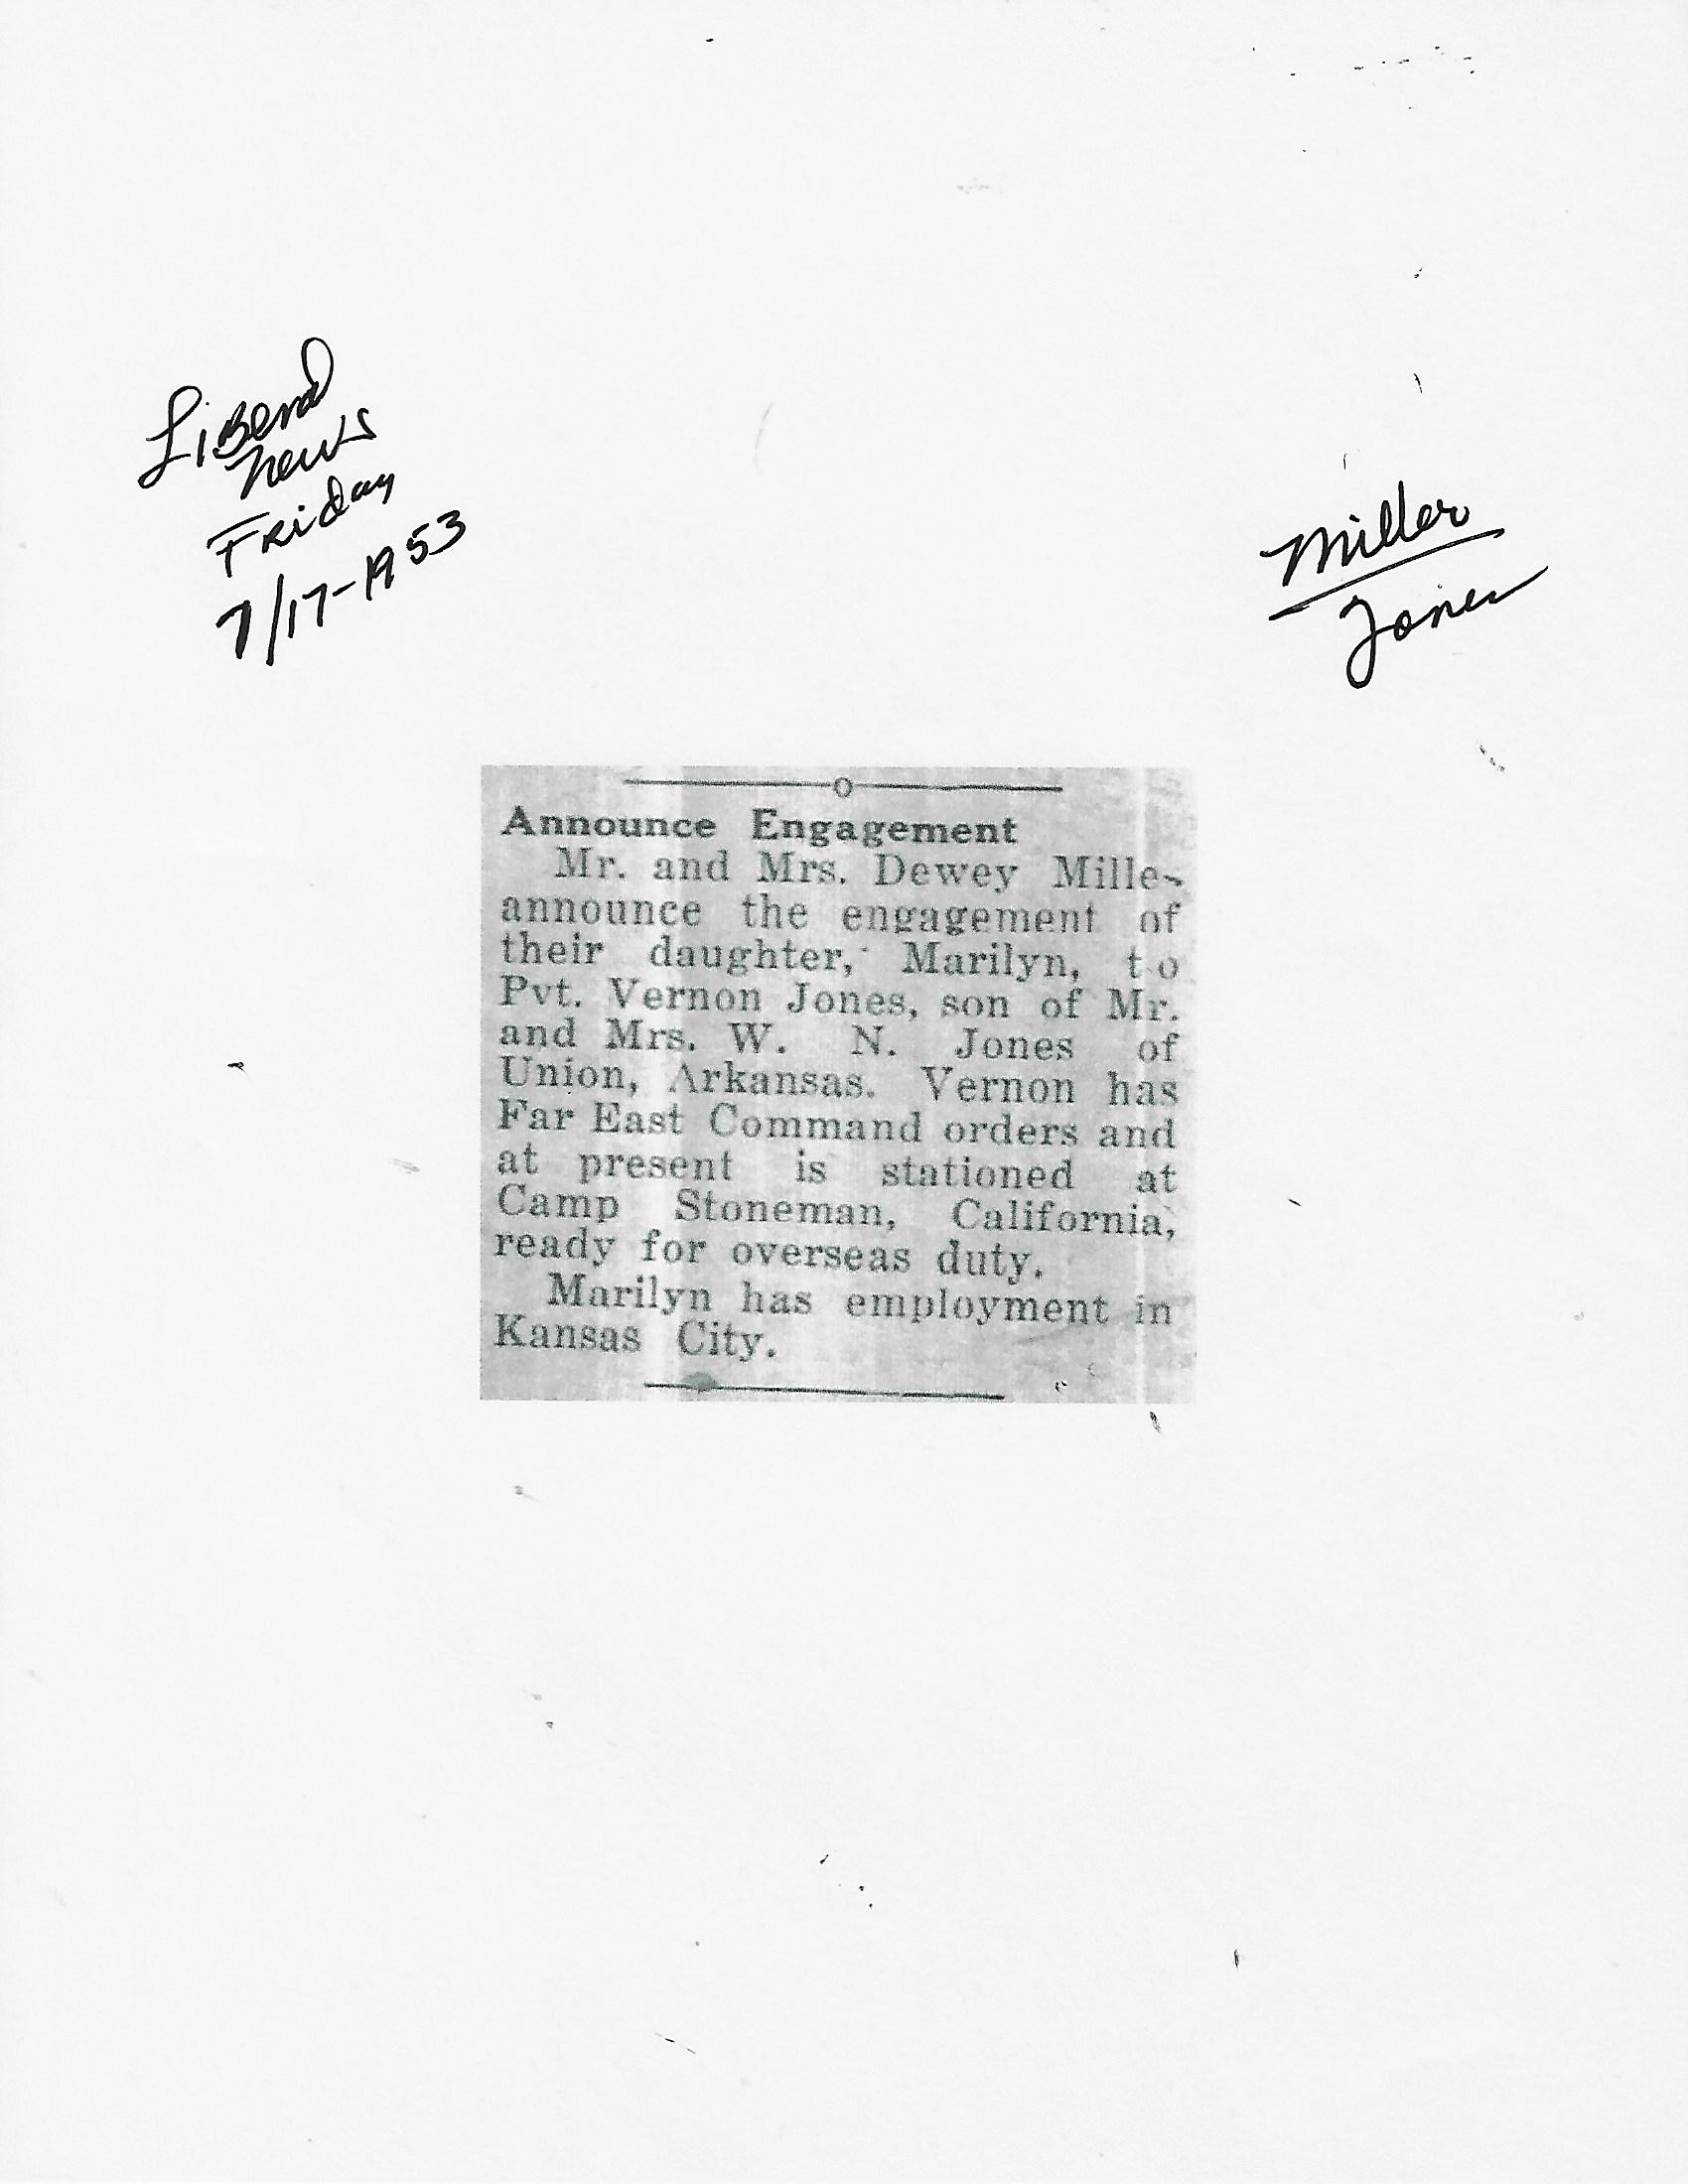 Liberal
News
Friday
7/17-1953
Miller
Jones
Announce Engagement
Mr. and Mrs. Dewey Mille
announce the engagement of
their daughter, Marilyn, to
Pvt. Vernon Jones, son of Mr.
and Mrs. W. N. Jones of
Union, Arkansas. Vernon has
Far East Command orders and
at present is stationed at
Camp Stoneman, California,
ready for overseas duty.
Marilyn has employment in
Kansas City.